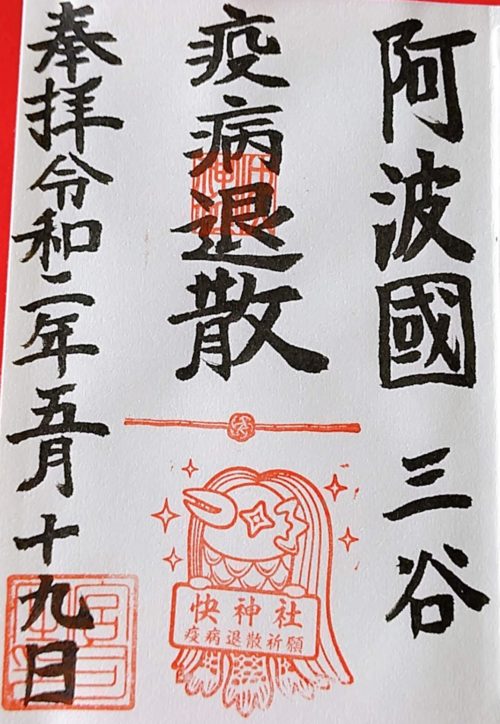 阿波國 三谷
疫病退散
快神社
疫病退散祈願
奉拝令和二年五月十九日